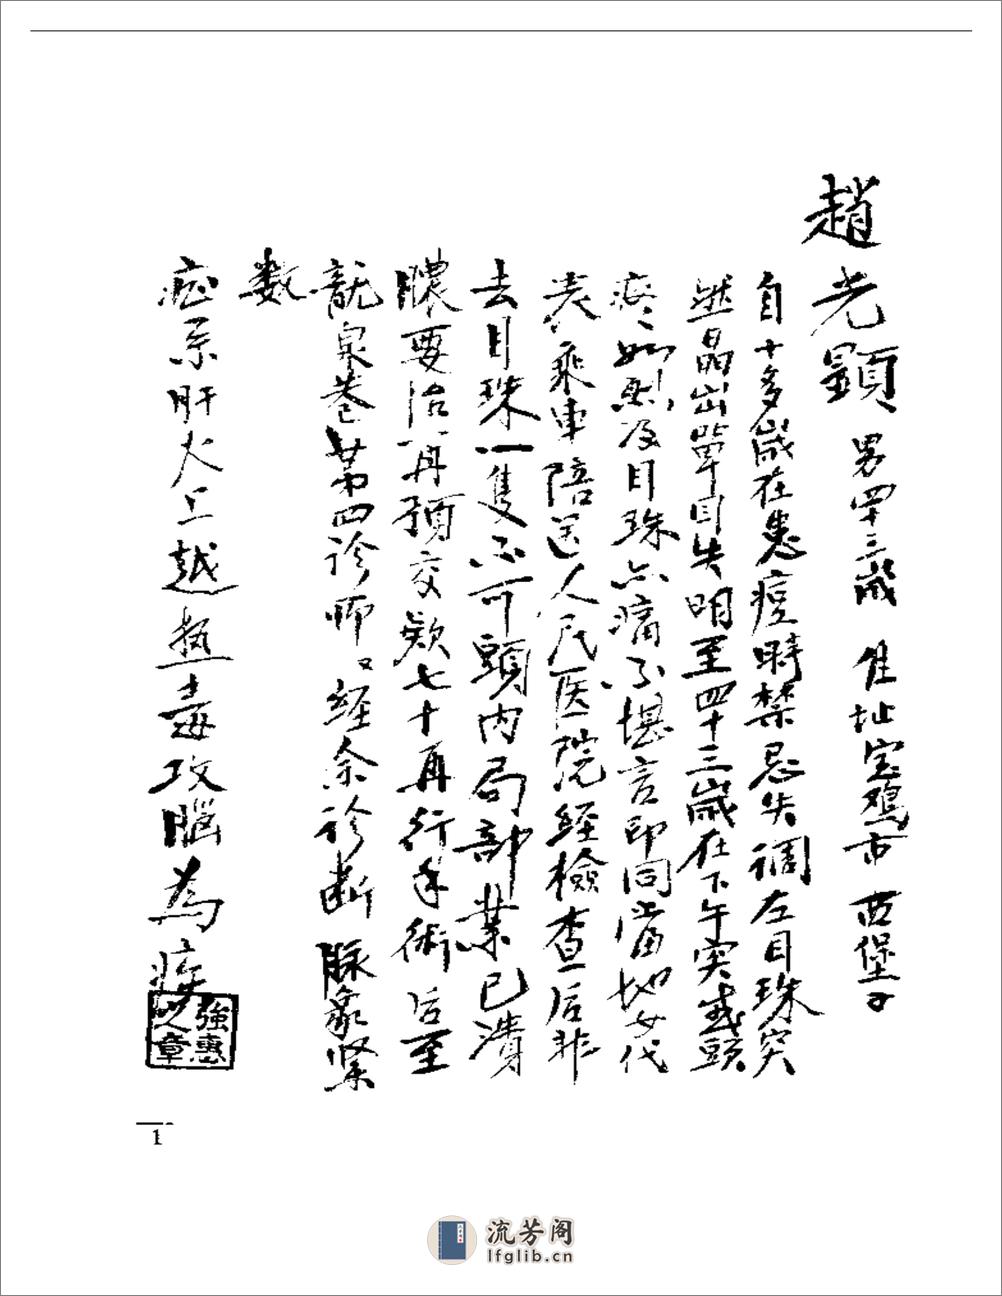 趙光顕 男四十三歳 住址宝鸡市西堡子
自十多歳在患痘時禁忌失調左目珠突
然晶出單目失明至四十三歳在下午突或頭
疼如裂及目珠亦痛不堪言即同當地女代
表乘車陪送人民医院经檢查后非
去目珠一隻不可頭内局部業已潰
膿要治再預交欵七十再行手術后至
龍泉巷第四诊所又经余诊断 脉象紧
数
症系肝火上越热毒攻腦為疾
強惠
之章
1
流芳阁
lfglib.cn